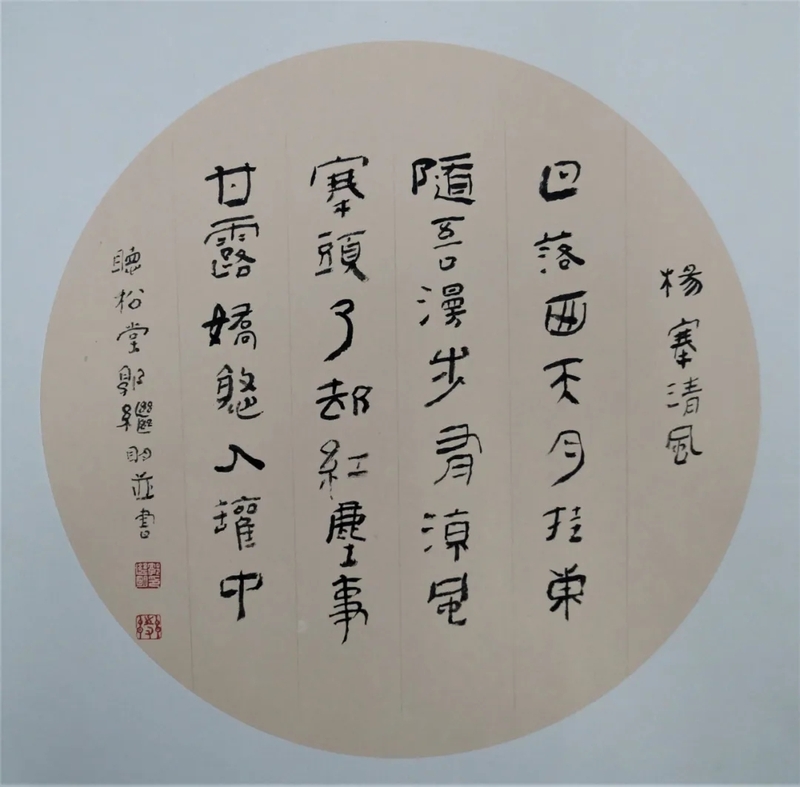 楊寨清風
日落西天月挂東
隨吾漫步有涼風
寨頭了却紅塵事
甘露嬌入罐中
聽松堂郭繼明並書